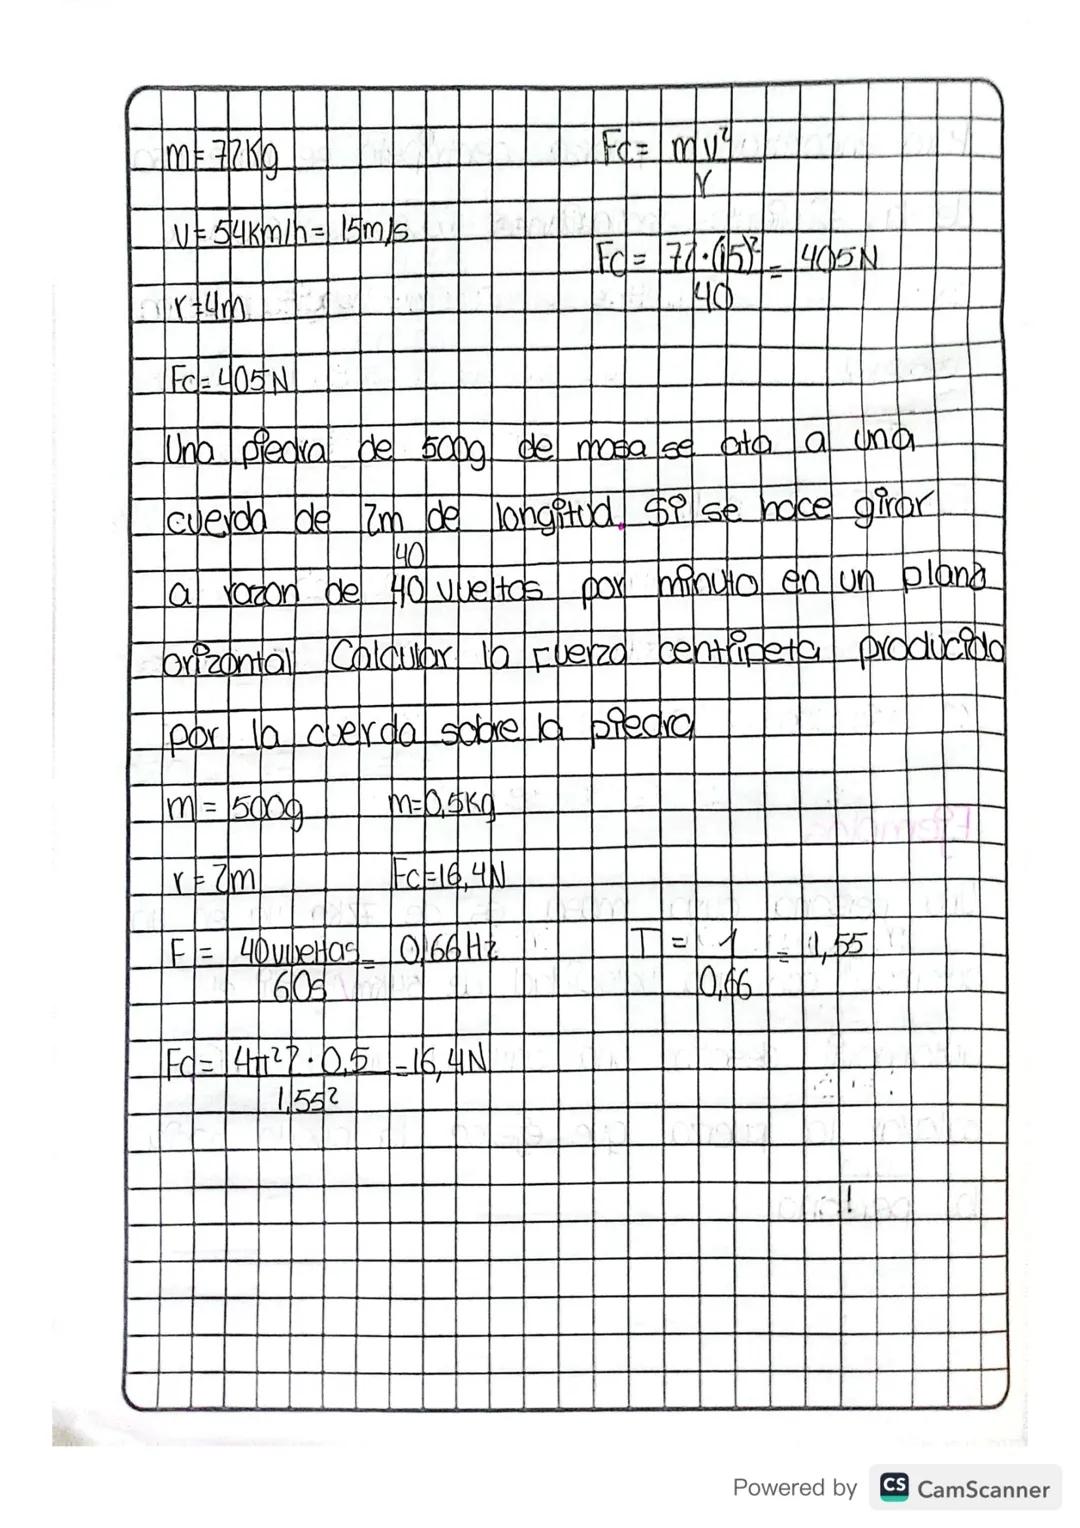 m= 72Kg
Fc= mv²
r
V= 54Km/h= 15m/s
Fc= 72·(15)² = 405N
40
r=4m
Fc= 405N
Una piedra de 500g de masa se ata a una
cuerda de 2m de longitud. Si se hace girar
40
a razon de 40 vueltas por minuto en un plano
orizontal Calcular la Fuerza centripeta producida
por la cuerda sobre la piedra
m= 500g m=0,5Kg
r= 2m Fc=16,4N
F= 40vueltas = 0,66Hz T= 1 = 1,55
60s 0,66
Fc= 4π²2·0,5 =16,4N
1,55²
Powered by CS CamScanner